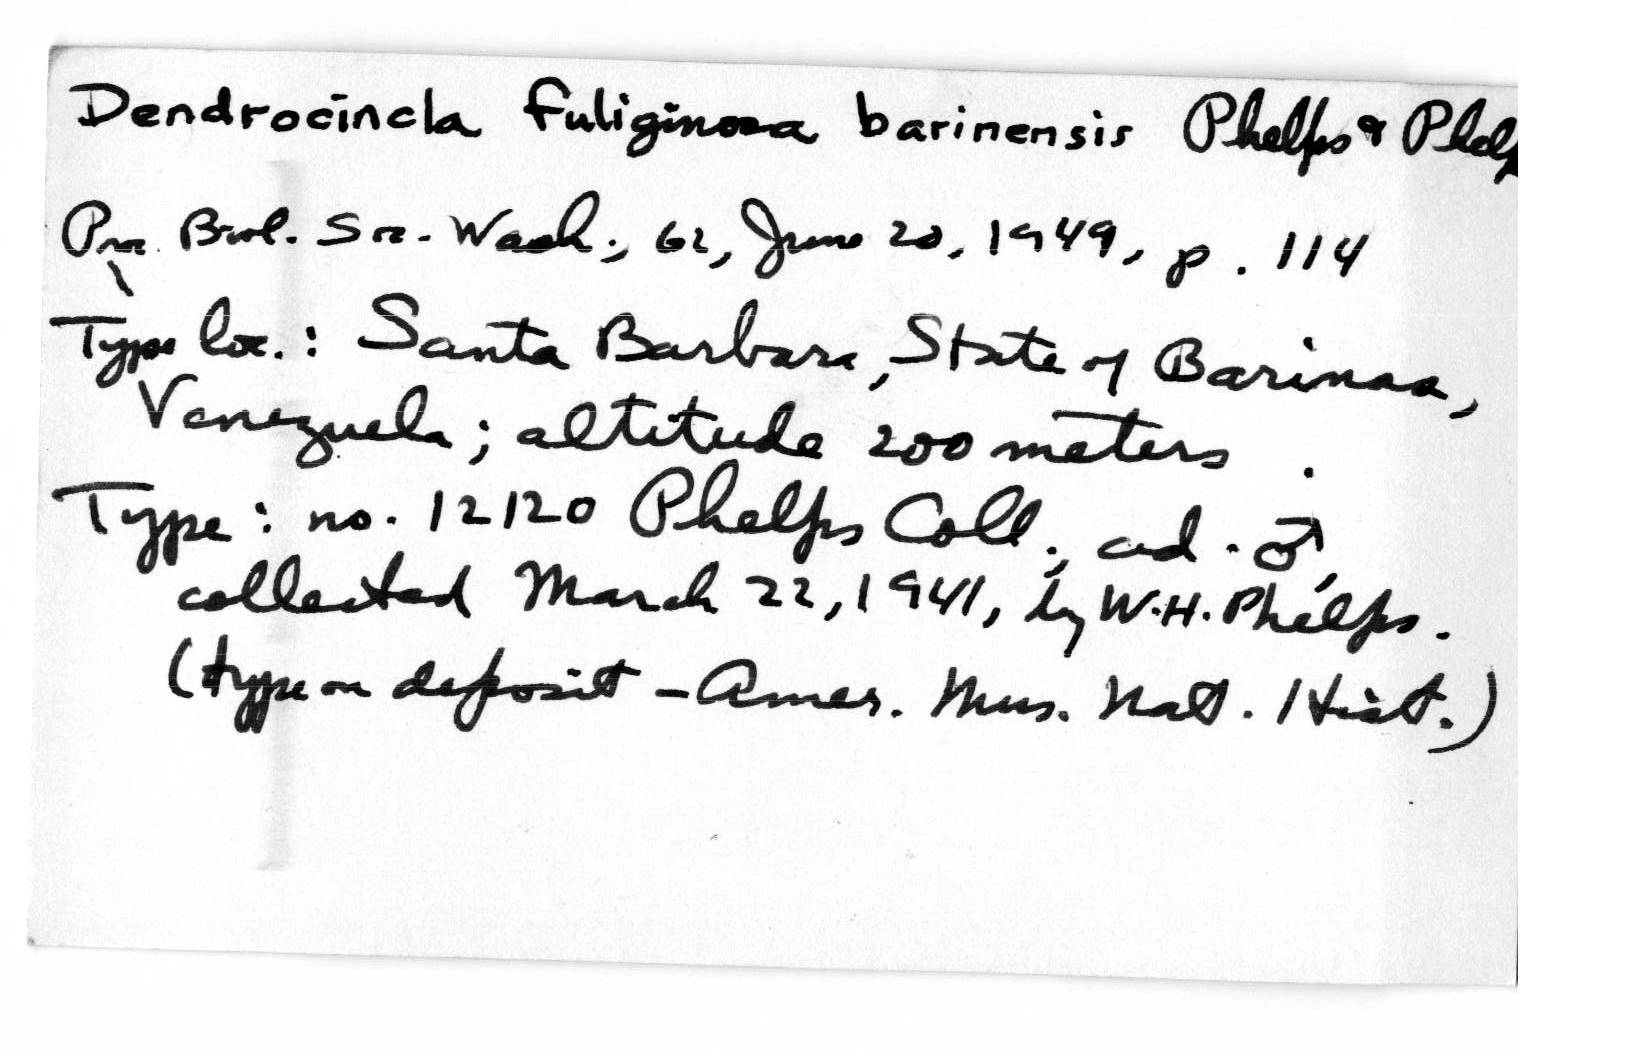 Dendrocincla fuliginosa barinensis Phelps & Phelp
Proc. Biol. Soc. Wash., 62, June 20, 1949, p. 114
Type loc.: Santa Barbara, State of Barinas,
Venezuela; altitude 200 meters.
Type: no. 12120 Phelps Coll., ad. ♂,
collected March 22, 1941, by W.H. Phelps.
(type on deposit - Amer. Mus. Nat. Hist.)